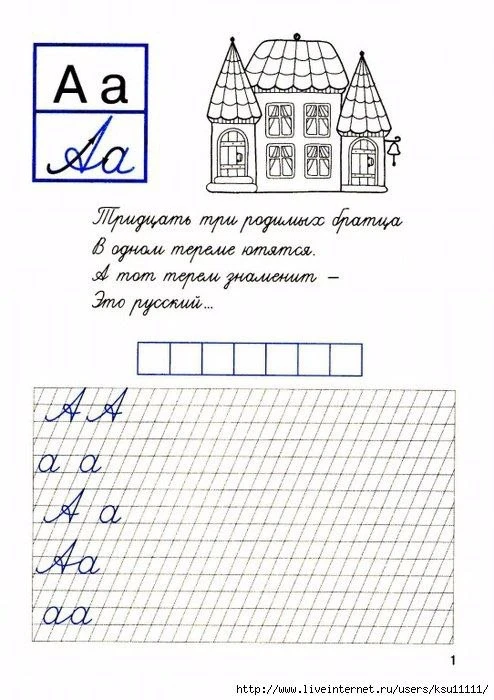 А а
Аа
Тридцать три родимых братца
В одном тереме ютятся.
А тот терем знаменит –
Это русский...
А А
а а
А а
Аа
аа
1
http://www.liveinternet.ru/users/ksu11111/